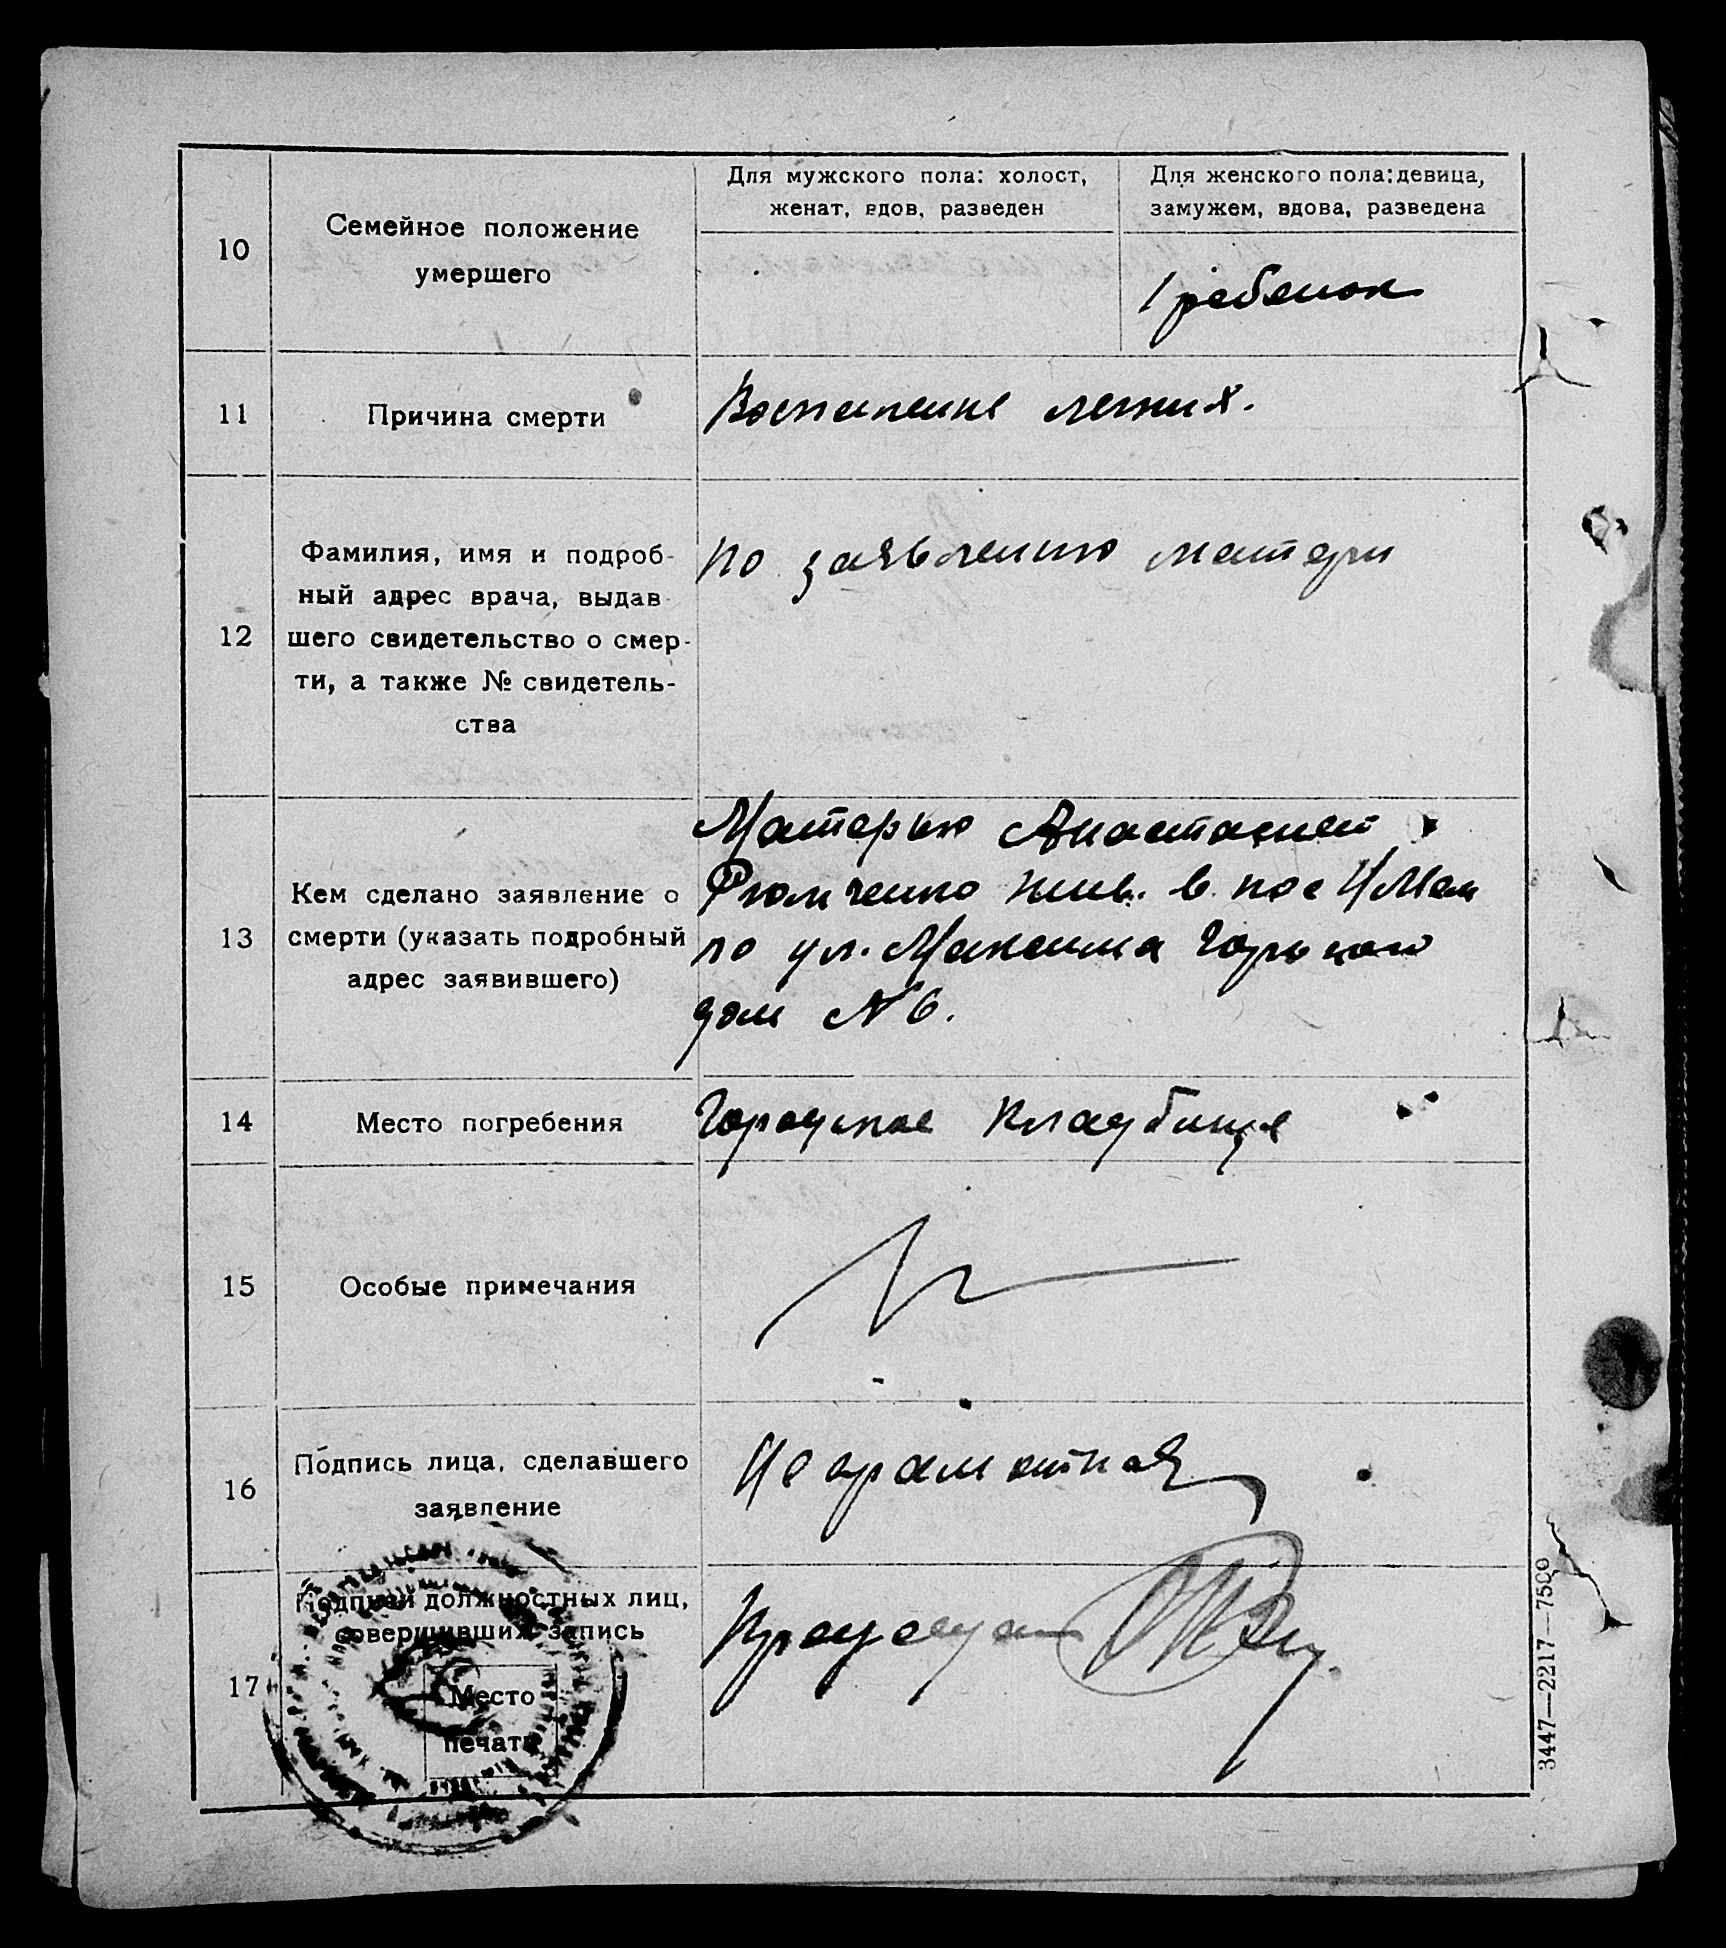 10
Семейное положение
умершего
Для мужского пола: холост,
женат, вдов, разведен
Для женского пола: девица,
замужем, вдова, разведена
ребенок
11
Причина смерти
Воспаление легких.
12
Фамилия, имя и подроб-
ный адрес врача, выдав
шего свидетельство о смер-
ти, а также № свидетель-
ства
по заявлению матери
13
Кем сделано заявление о
смерти (указать подробный
адрес заявившего)
Матерью Анастасией
жив. в пос
по ул. Максима Горького
дом N 6.
14
Место погребения
Городское кладбище
15
Особые примечания
16
Подпись лица, сделавшего
заявление
Неграмотная
17
Подписи должностных лиц,
совершивших запись
Место
печати
3447—2217—7500